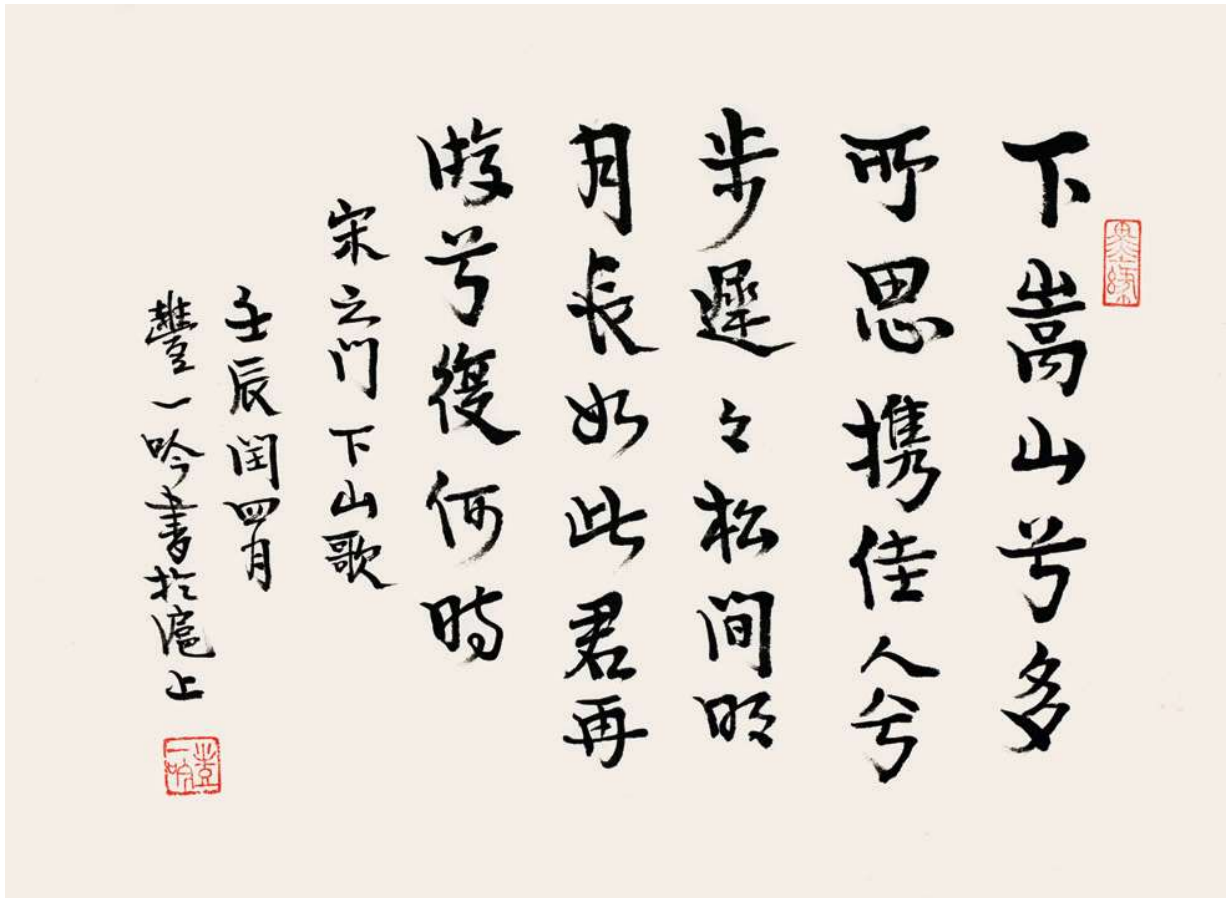 墨缘
下嵩山兮多
所思携佳人兮
步遲々松間明
月長如此君再
游兮復何時
宋之门下山歌
壬辰闰四月
豐一吟書於滬上
豐一吟